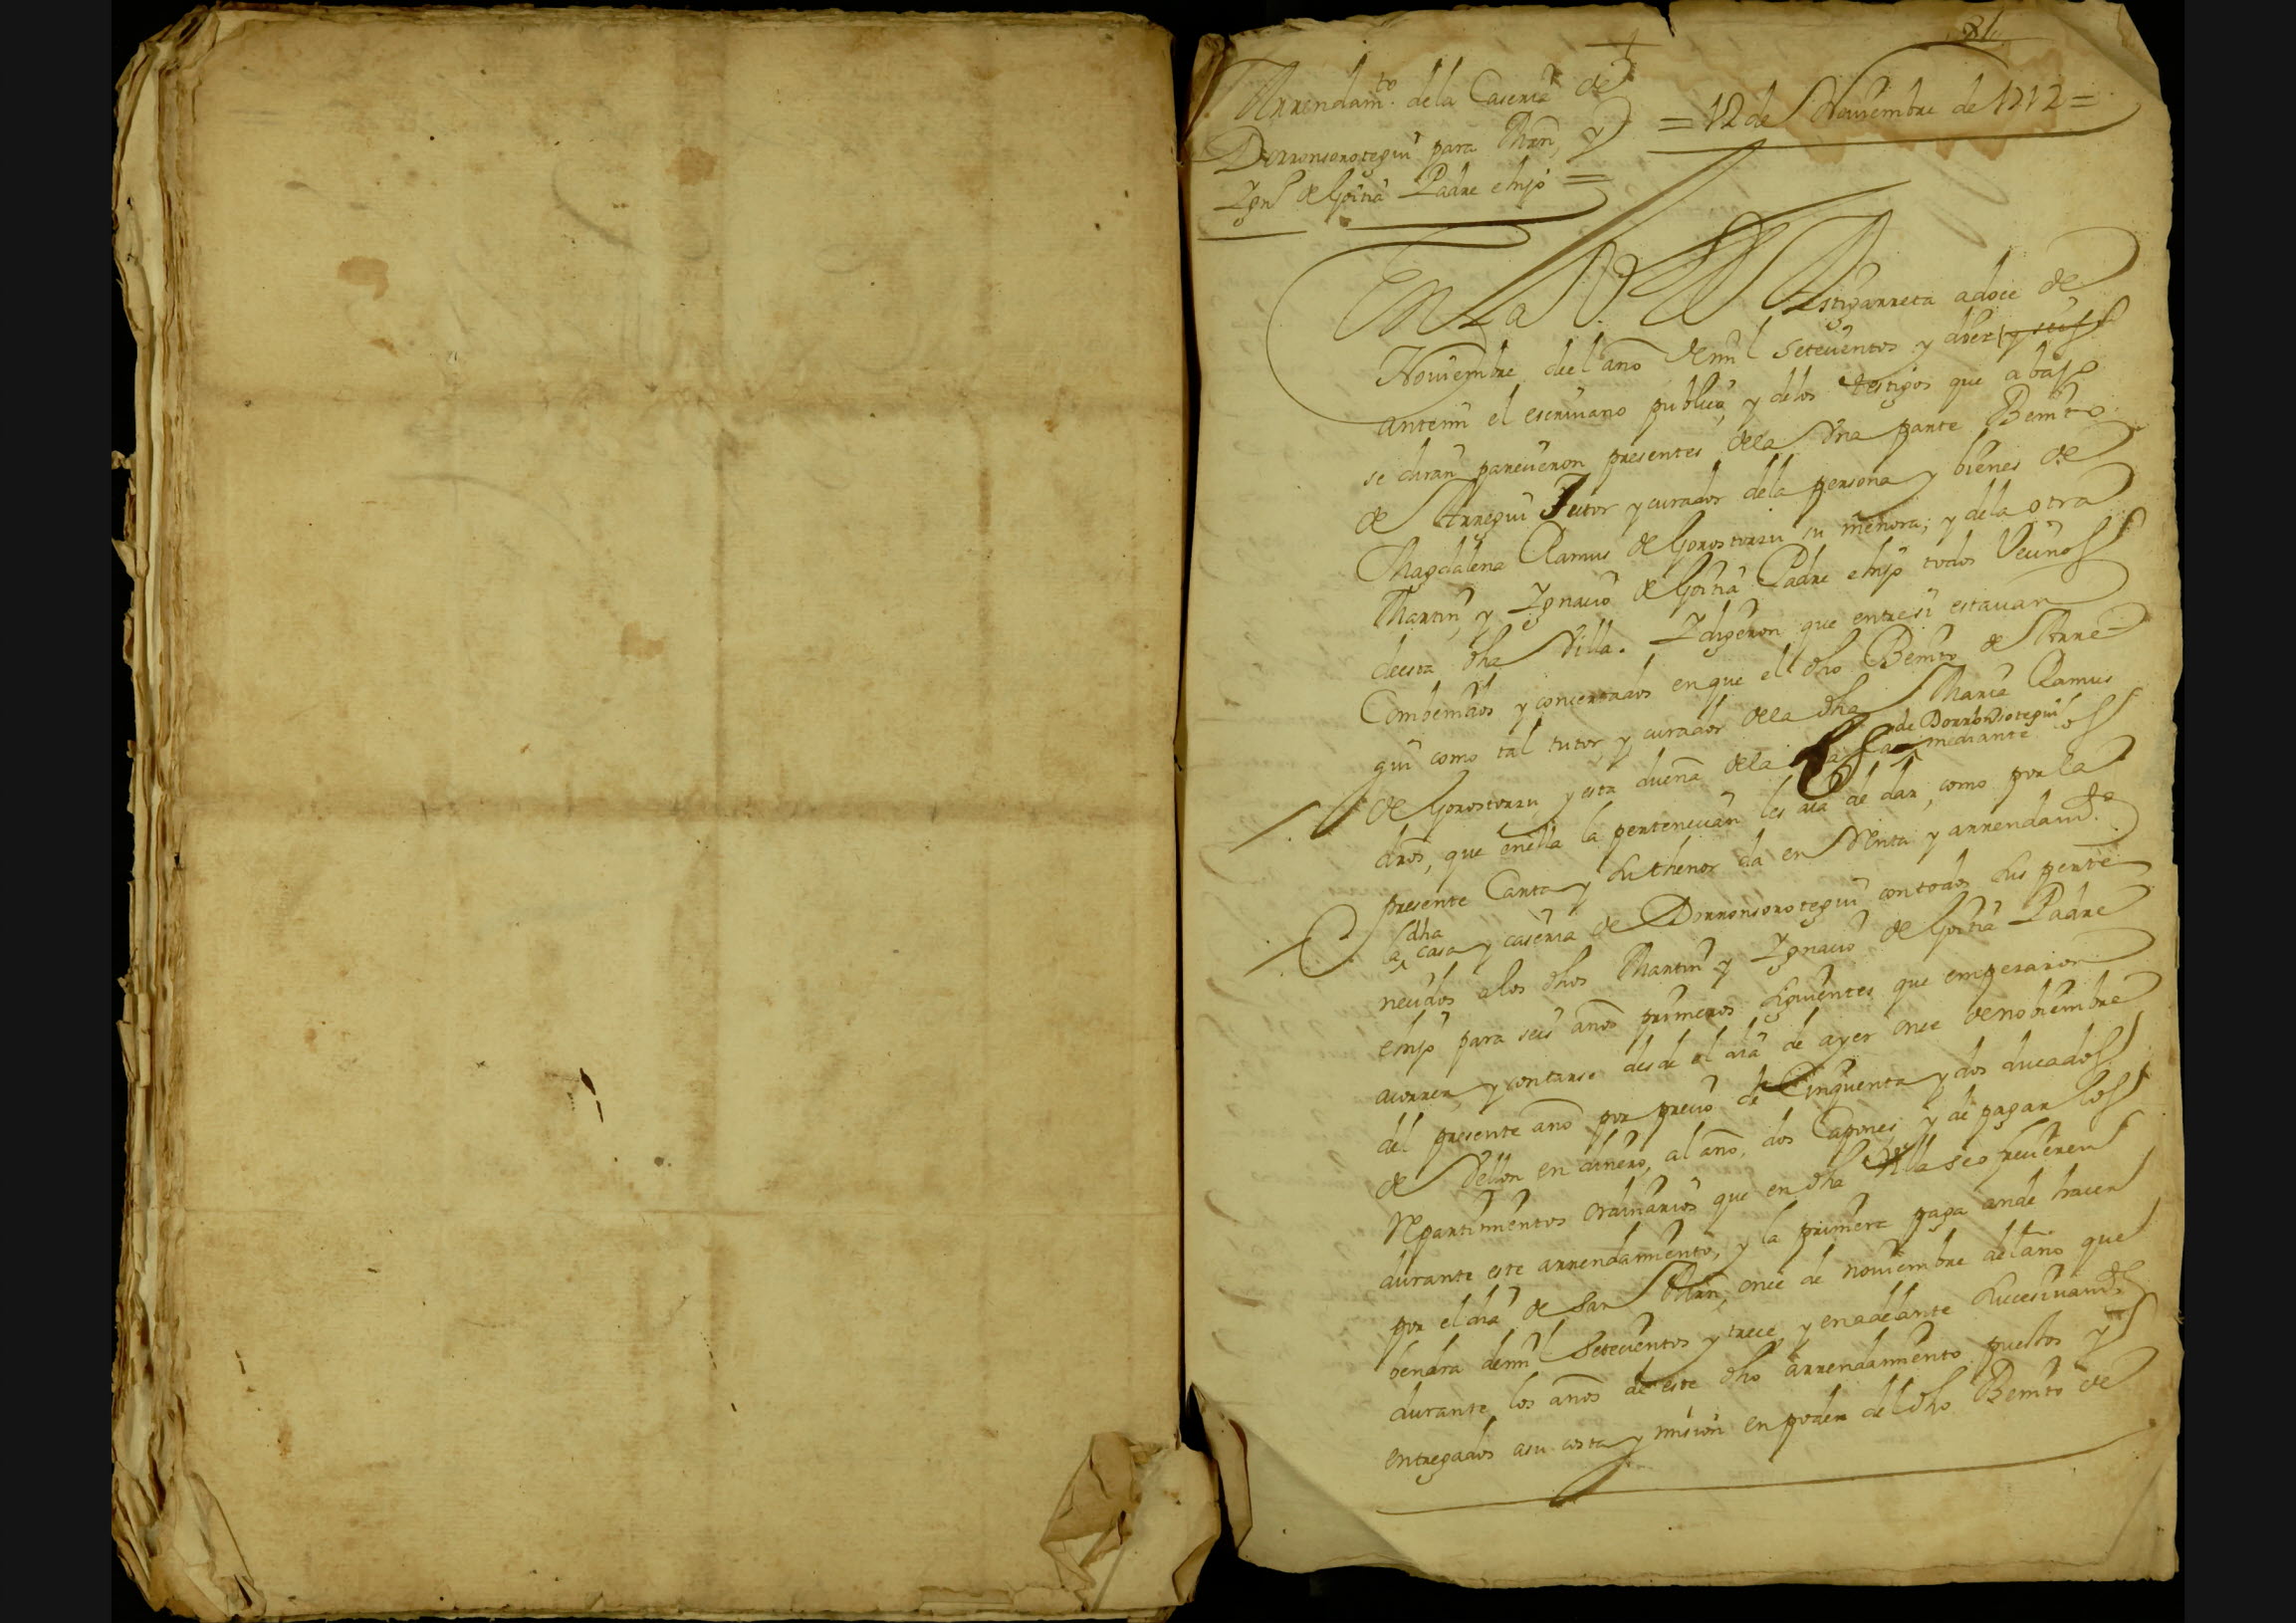 81
Arrendam.to dela Caseria de
Dorronsorotegui para Mrn, y
Ign.o de Goitia Padre e hijo =
= 12 de Noviembre de 1712 =
En La Villa de Astigarreta adoce de
Noviembre deel año de mil setecientos y diez y seis
antemi el escriuano publico, y delos testigos que abajo
se diran parecieron presentes dela Una parte Benito
de Arregui Tutor y curador dela persona y bienes de
Magdalena Ramus de Gorostorzu su menora, y dela otra
Martin, y Ignacio de Goitia Padre e hijo todos Vecinos
deesta dha Villa. Y digeron que entresi estauan
Combenidos y concertados en que el dho Benito de Arre-
gui como tal tutor, y curador dela dha Maria Ramus
de Gorostorzu y esta dueña dela Casa de Dorronsorotegui mediante los
dros, que enella la pertenecian les aia de dar, como por la
presente Carta y su thenor da en Renta y arrendam.to
la dha casa y caseria de Dorronsorotegui contodos sus perte-
necidos alos dhos Martin y Ignacio de Goitia Padre
e hijo para seis años primeros siguientes que empezaron
acorrer, y contarse desde el dia de ayer once de nobiembre
del presente año por precio de Cinquenta y dos ducados
de Vellon en dinero, al año, dos Capones y de pagar los
Repartimentos Ordinarios que en dha Villa seofrecieren
durante este arrendamiento, y la primera paga ande hacer
por el dia de San Mrn, once de noviembre del año que
bendra demil Setecientos y trece y enadelante sucesivam.te
durante los años de este dho arrendamiento puestos y
entregados asu costa y mision en poder del dho Benito de